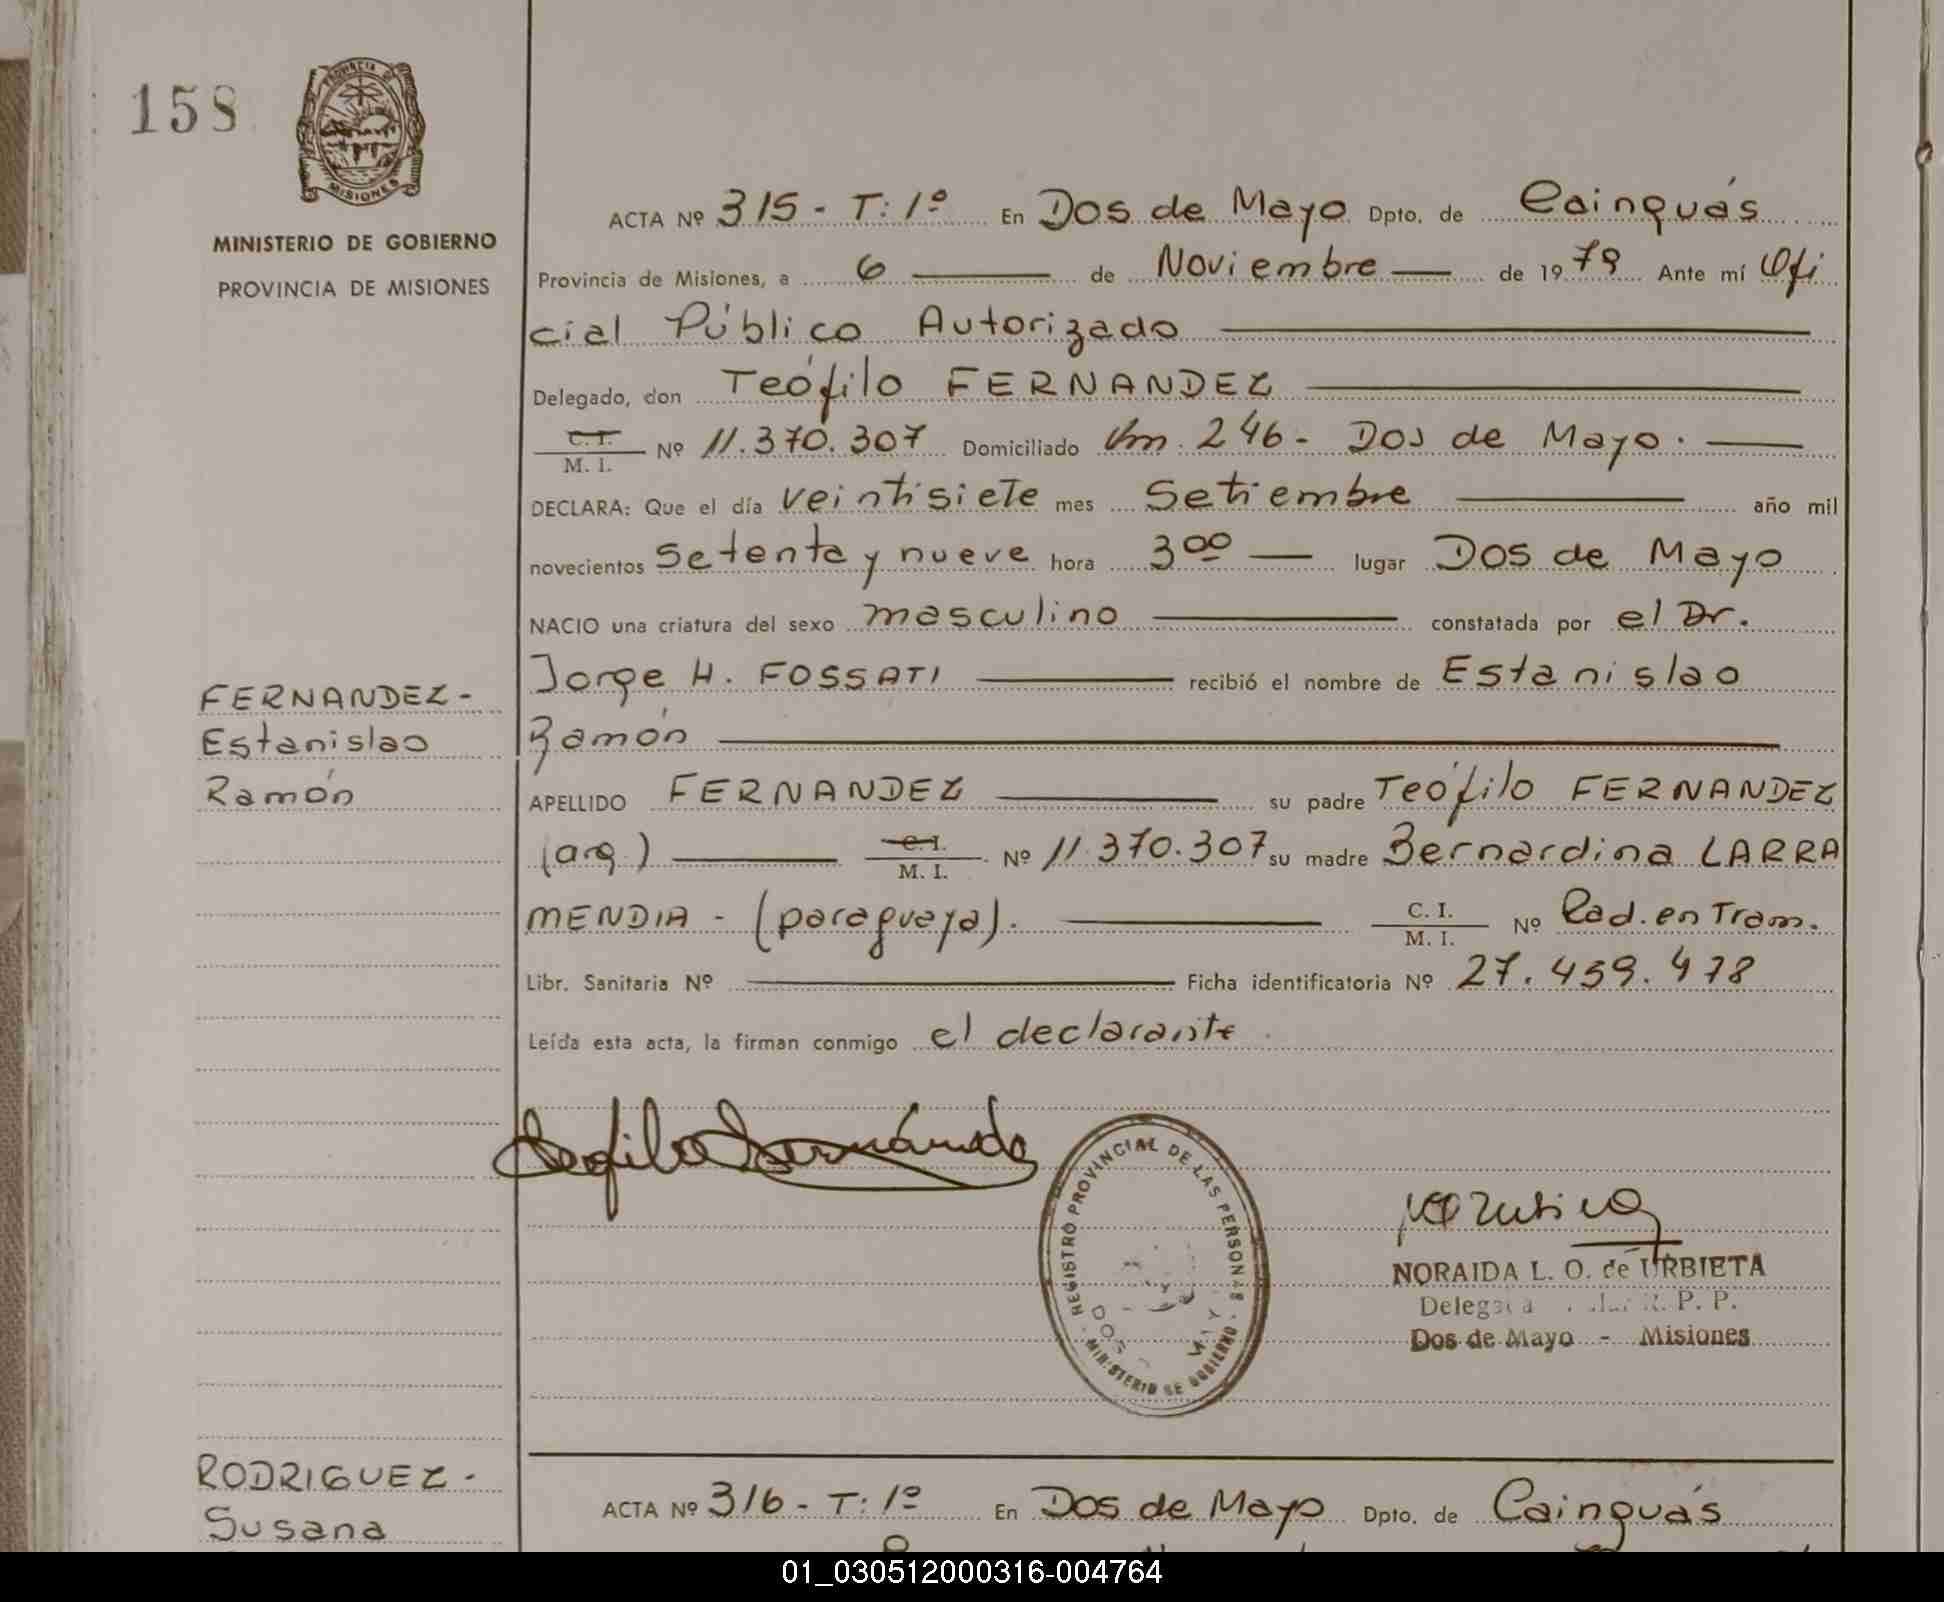 158
PROVINCIA DE
MISIONES
MINISTERIO DE GOBIERNO
PROVINCIA DE MISIONES
ACTA Nº 315 - T: 1º En Dos de Mayo Dpto. de Cainguás
Provincia de Misiones, a 6 de Noviembre de 1979 Ante mí Ofi
cial Público Autorizado
Delegado, don Teófilo FERNANDEZ
C. I.
M. I. Nº 11.370.307 Domiciliado Km. 246 - Dos de Mayo.
DECLARA: Que el día veintisiete mes Setiembre año mil
novecientos setenta y nueve hora 3 00 lugar Dos de Mayo
NACIO una criatura del sexo masculino constatada por el Dr.
Jorge H. FOSSATI recibió el nombre de Estanislao
Ramón
FERNANDEZ -
Estanislao
Ramón
APELLIDO FERNANDEZ su padre Teófilo FERNANDEZ
(arg.) C. I.
M. I. Nº 11.370.307 su madre Bernardina LARRA
MENDIA - (paraguaya). C. I.
M. I. Nº Rad. en Tram.
Libr. Sanitaria Nº Ficha identificatoria Nº 27.459.478
Leída esta acta, la firman conmigo el declarante.
Teofilo Fernández
REGISTRO PROVINCIAL DE LAS PERSONAS
MINISTERIO DE GOBIERNO
DOS
NORAIDA L. O. de URBIETA
R. P. P.
Dos de Mayo - Misiones
RODRIGUEZ -
Susana
ACTA Nº 316 - T: 1º En Dos de Mayo Dpto. de Cainguás
01_030512000316-004764